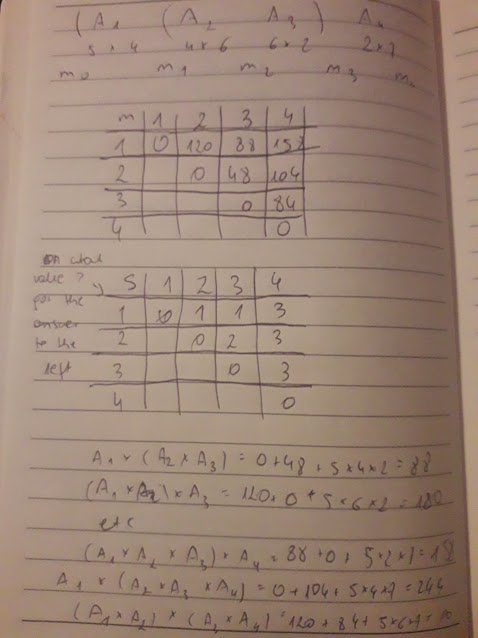 (A1 (A2 A3) A4
5x4 4x6 6x2 2x7
m0 m1 m2 m3
m 1 2 3 4
1 0 120 88 158
2 0 48 104
3 0 84
4 0
on what
value?
for the
answer
to the
left
S 1 2 3 4
1 0 1 1 3
2 0 2 3
3 0 3
4 0
A1 x (A2 x A3) = 0+48 + 5x4x2 = 88
(A1 x A2) x A3 = 120+0 + 5x6x2 = 180
etc
(A1 x A2 x A3) x A4 = 88 +0 + 5x2x7 =
A1 x (A2 x A3 x A4) = 0+104+5x4x7 = 244
(A1 x A2) x (A3 x A4) = 120 + 84 + 5x6x7 =